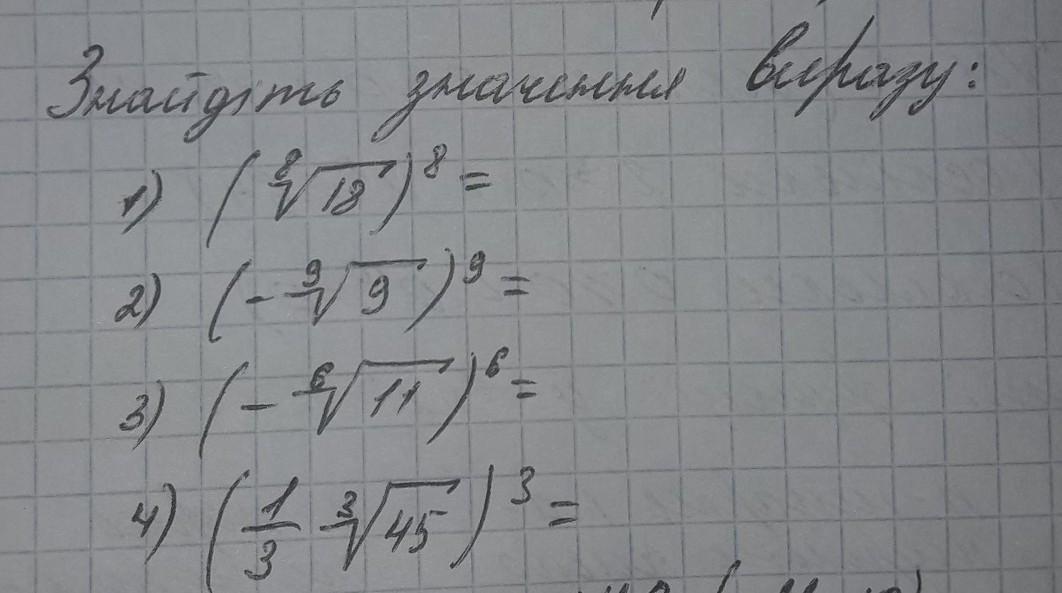 Знайдіть значення виразу:
1) (⁸√18)⁸ =
2) (-⁹√9)⁹ =
3) (-⁶√11)⁶ =
4) (1/3 ³√45)³ =